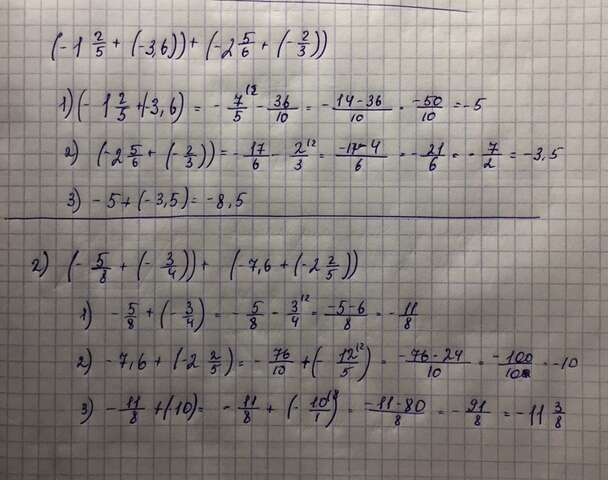 (-1 2/5 + (-3,6)) + (-2 5/6 + (-2/3))
1) (-1 2/5 + (-3,6) = -7/5 ^(12 - 36/10 = -14-36/10 = -50/10 = -5
2) (-2 5/6 + (-2/3)) = -17/6 - 2/3 ^(12 = -17-4/6 = -21/6 = -7/2 = -3,5
3) -5 + (-3,5) = -8,5
2) (-5/8 + (-3/4)) + (-7,6 + (-2 2/5))
1) -5/8 + (-3/4) = -5/8 - 3/4 ^(12 = -5-6/8 = -11/8
2) -7,6 + (-2 2/5) = -76/10 + (-12/5 ^(12) = -76-24/10 = -100/10 = -10
3) -11/8 + (10) = -11/8 + (-10/1 ^(8) = -11-80/8 = -91/8 = -11 3/8